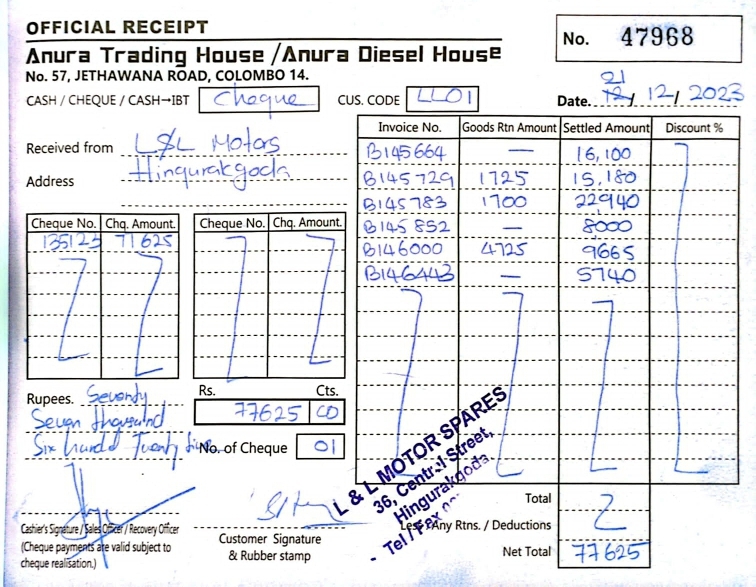 OFFICIAL RECEIPT
No. 47968
Anura Trading House /Anura Diesel House
No. 57, JETHAWANA ROAD, COLOMBO 14.
CASH / CHEQUE / CASH→IBT Cheque CUS. CODE LL01 Date. 21 12/ 12/ 2023
Received from L&L Motors
Address Hingurakgoda
Invoice No. Goods Rtn Amount Settled Amount Discount %
B145664 — 16,100
B145729 1725 15,180
B145783 1700 22940
B145852 — 8000
B146000 4725 9665
B146443 — 5740
Cheque No. Chq. Amount. Cheque No. Chq. Amount.
135123 71625
Rupees. Seventy
Seven thousand
Six hundred Twenty five
Rs. Cts.
77625 00
No. of Cheque 01
L & L MOTOR SPARES
36, Central Street,
Hingurakgoda
Tel / Fax
Cashier's Signature / Sales Officer / Recovery Officer
(Cheque payments are valid subject to
cheque realisation.)
Customer Signature
& Rubber stamp
Total
Less Any Rtns. / Deductions
Net Total 77625